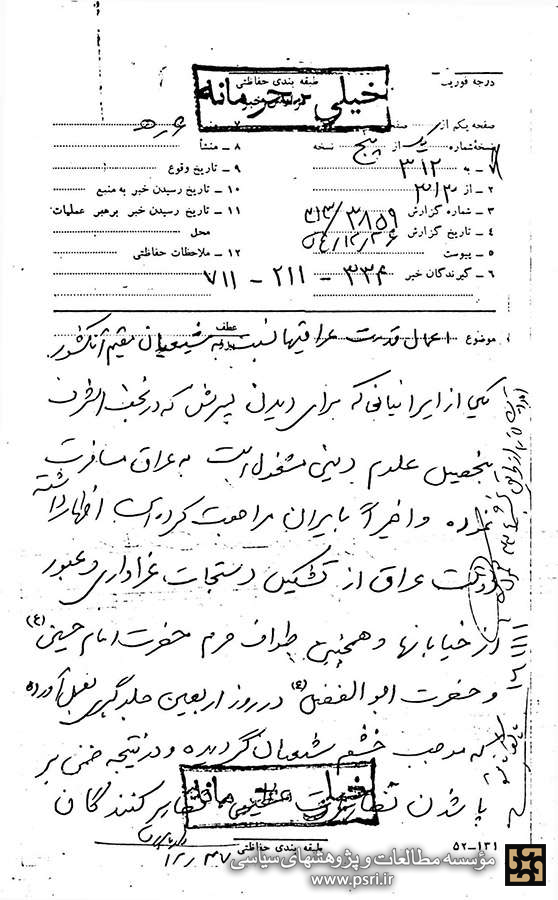 درجه فوریت
طبقه بندی حفاظتی
خیلی محرمانه
صفحه یکم از
صفحه
نسخه شماره یک از پنج نسخه
۱ - به ۳۱۲
۲ - از
۳ - شماره گزارش ۳۸۵۹/
۴ - تاریخ گزارش
۵ - پیوست
۶ - گیرندگان خبر ۳۳۴ - ۲۱۱ - ۷۱۱
۸ - منشأ
۹ - تاریخ وقوع
۱۰ - تاریخ رسیدن خبر به منبع
۱۱ - تاریخ رسیدن خبر برهبر عملیات
محل
۱۲ - ملاحظات حفاظتی
عطف
موضوع اعمال قدرت عراقیها نسبت به شیعیان مقیم آنکشور
یکی از ایرانیانی که برای دیدن پسرش که در نجف اشرف
بتحصیل علوم دینی مشغول است به عراق مسافرت
نموده و اخیراً بایران مراجعت کرده است اظهار داشته
دولت عراق از تشکیل دستجات عزاداری و عبور
از خیابانها و همچنین طواف حرم حضرت امام حسین (ع)
و حضرت ابوالفضل (ع) در روز اربعین جلوگیری بعمل آورده
که موجب خشم شیعیان گردیده و در نتیجه ضمن بر
پا شدن تظاهرات عظیمی تظاهر کنندگان
خیلی محرمانه
طبقه بندی حفاظتی
۵۲-۱۳۱
مؤسسه مطالعات و پژوهشهای سیاسی
www.psri.ir